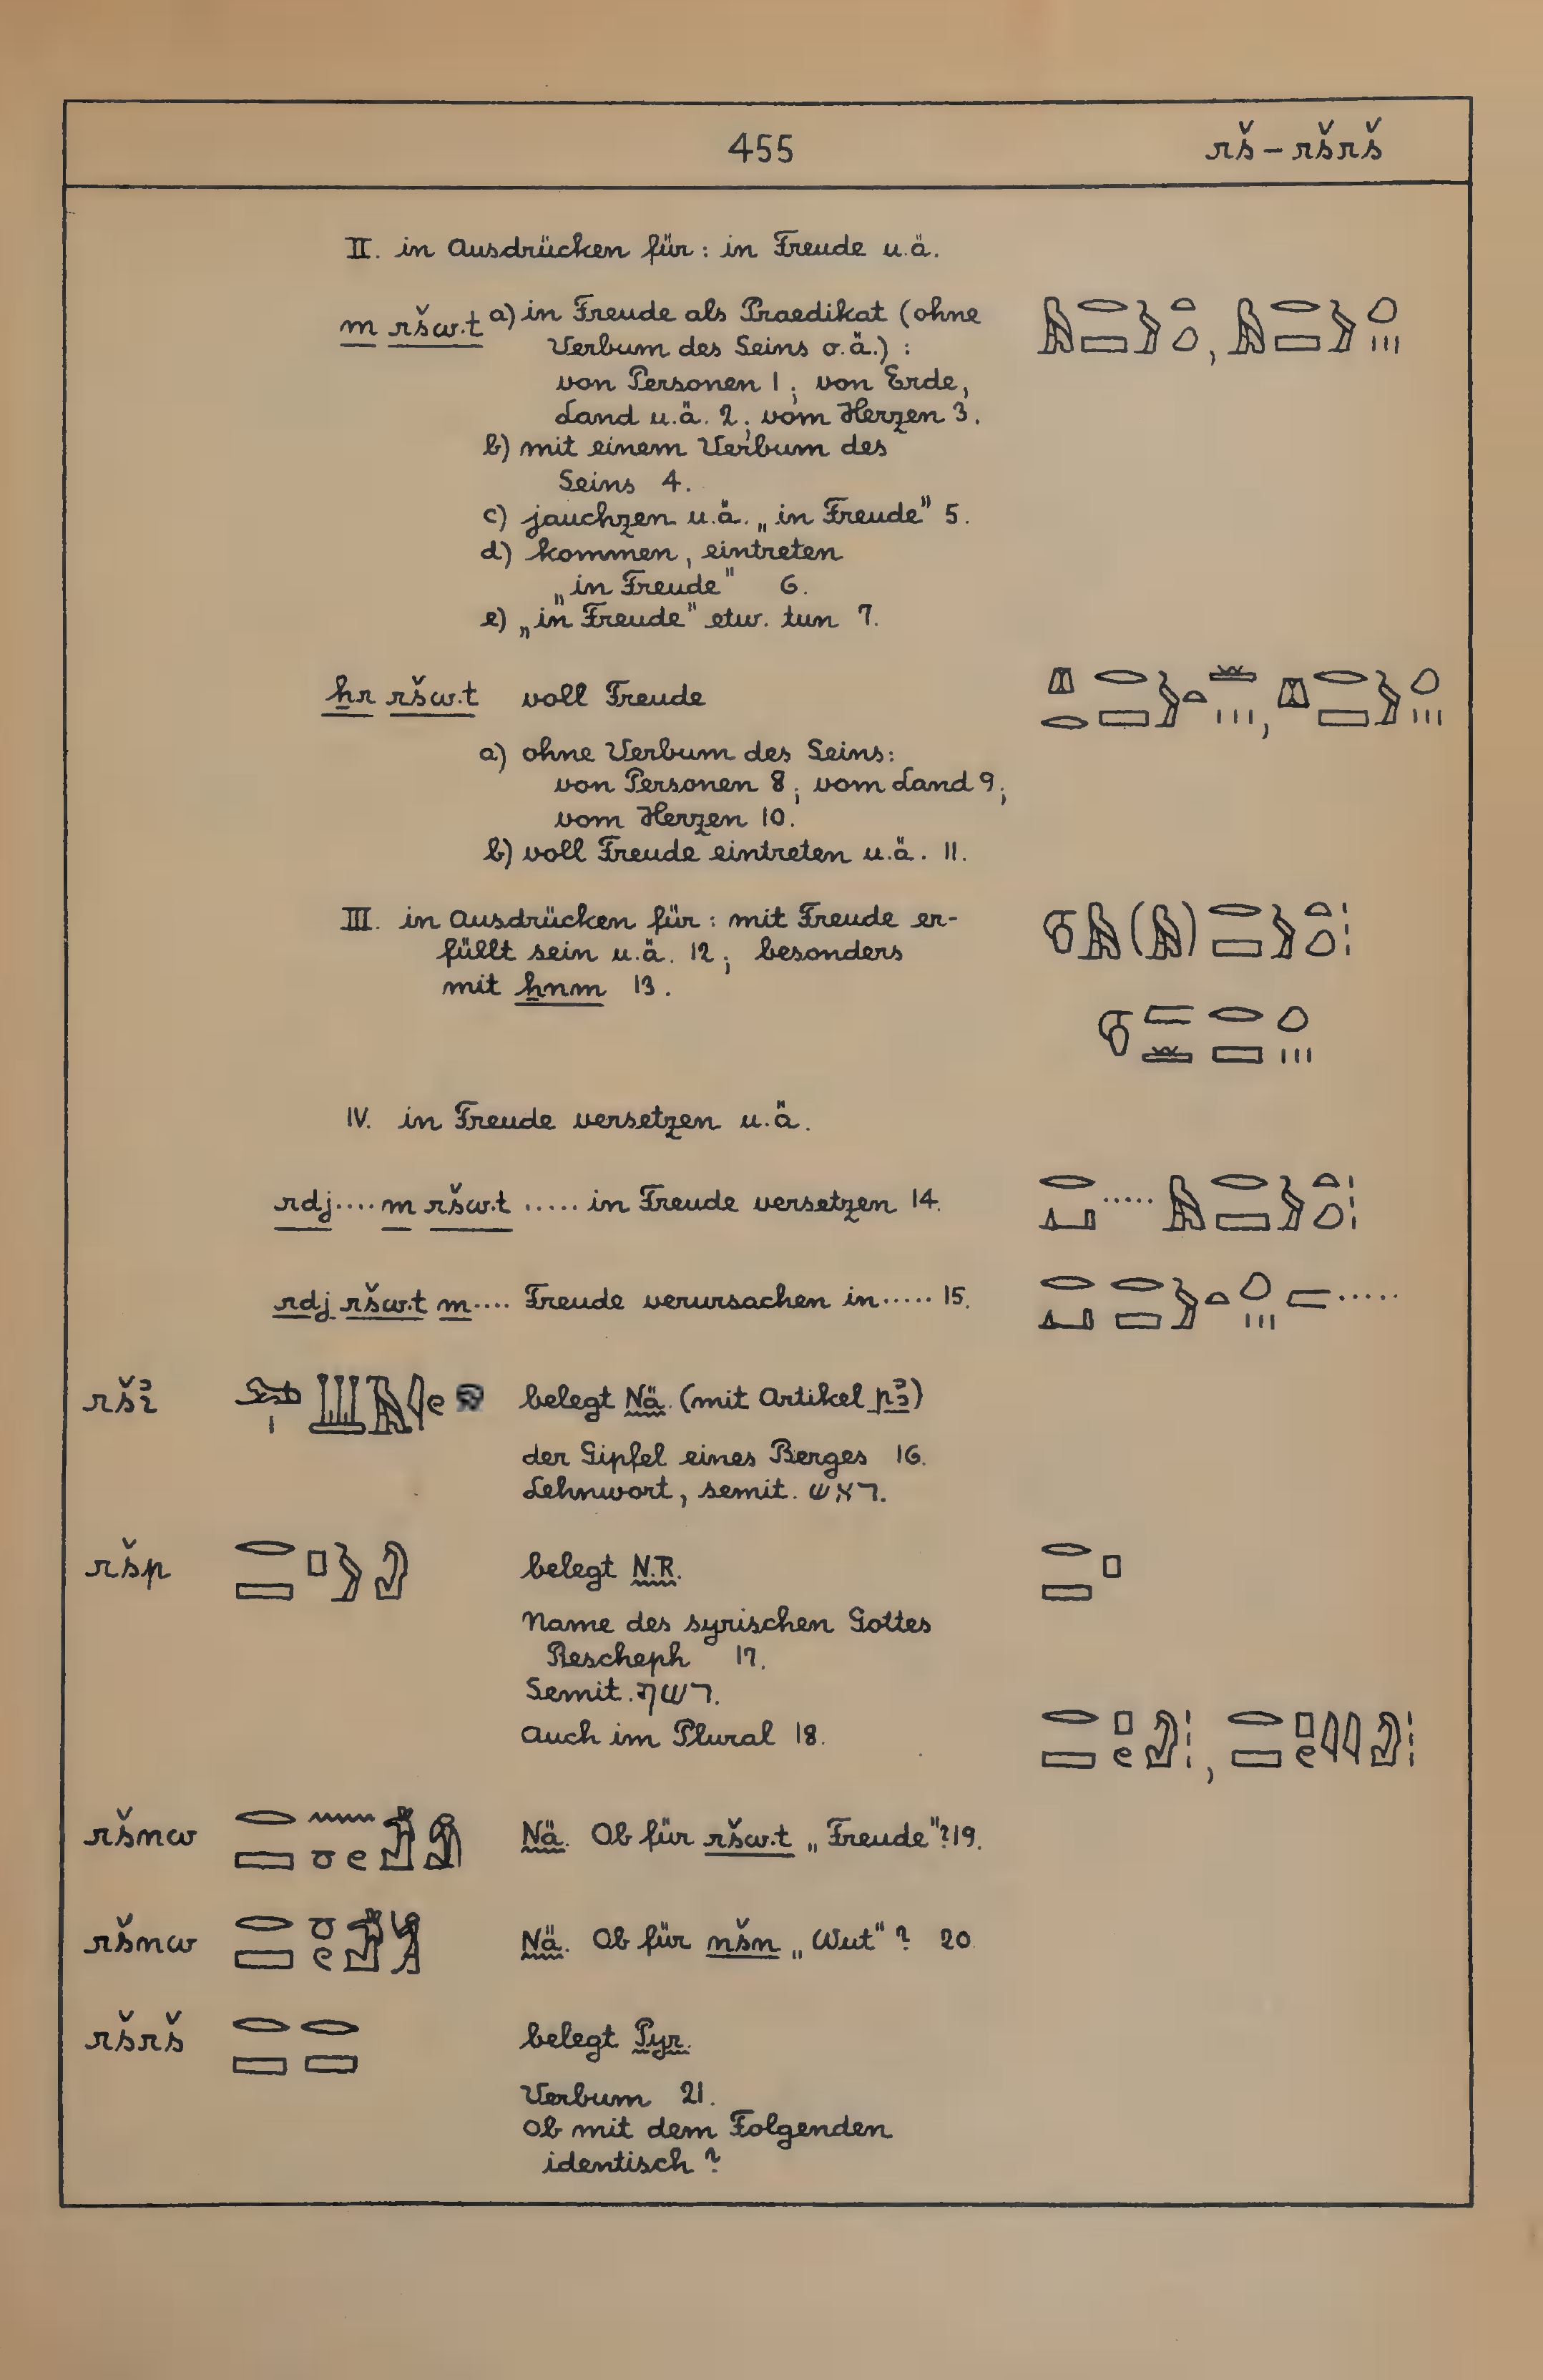 455
rš – ršrš
II. in Ausdrücken für : in Freude u.ä.
m ršw.t a) in Freude als Praedikat (ohne
Verbum des Seins o.ä.) :
von Personen 1 ; von Erde,
Land u.ä. 2 ; vom Herzen 3.
b) mit einem Verbum des
Seins 4.
c) jauchzen u.ä. „in Freude" 5.
d) kommen, eintreten
„in Freude" 6.
e) „in Freude" etw. tun 7.
ẖr ršw.t voll Freude
a) ohne Verbum des Seins:
von Personen 8 ; vom Land 9 ;
vom Herzen 10.
b) voll Freude eintreten u.ä. 11.
III. in Ausdrücken für : mit Freude er-
füllt sein u.ä. 12 ; besonders
mit ẖnm 13.
IV. in Freude versetzen u.ä.
rdj .... m ršw.t ..... in Freude versetzen 14.
rdj ršw.t m .... Freude verursachen in ..... 15.
ršꜣ belegt Nä. (mit Artikel pꜣ)
der Gipfel eines Berges 16.
Lehnwort, semit. ראש.
ršp belegt N.R.
Name des syrischen Gottes
Rescheph 17.
Semit. רשף.
Auch im Plural 18.
ršnw Nä. Ob für ršw.t „Freude"? 19.
ršnw Nä. Ob für nšn „Wut"? 20
ršrš belegt Pyr.
Verbum 21.
Ob mit dem Folgenden
identisch ?